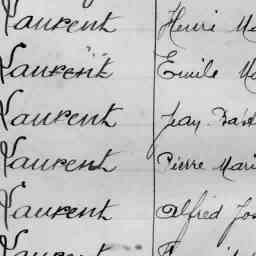 Laurent Henri
Laurent Emile
Laurent Jean Bapt
Laurent Pierre Mari
Laurent Alfred Jos
Laurent